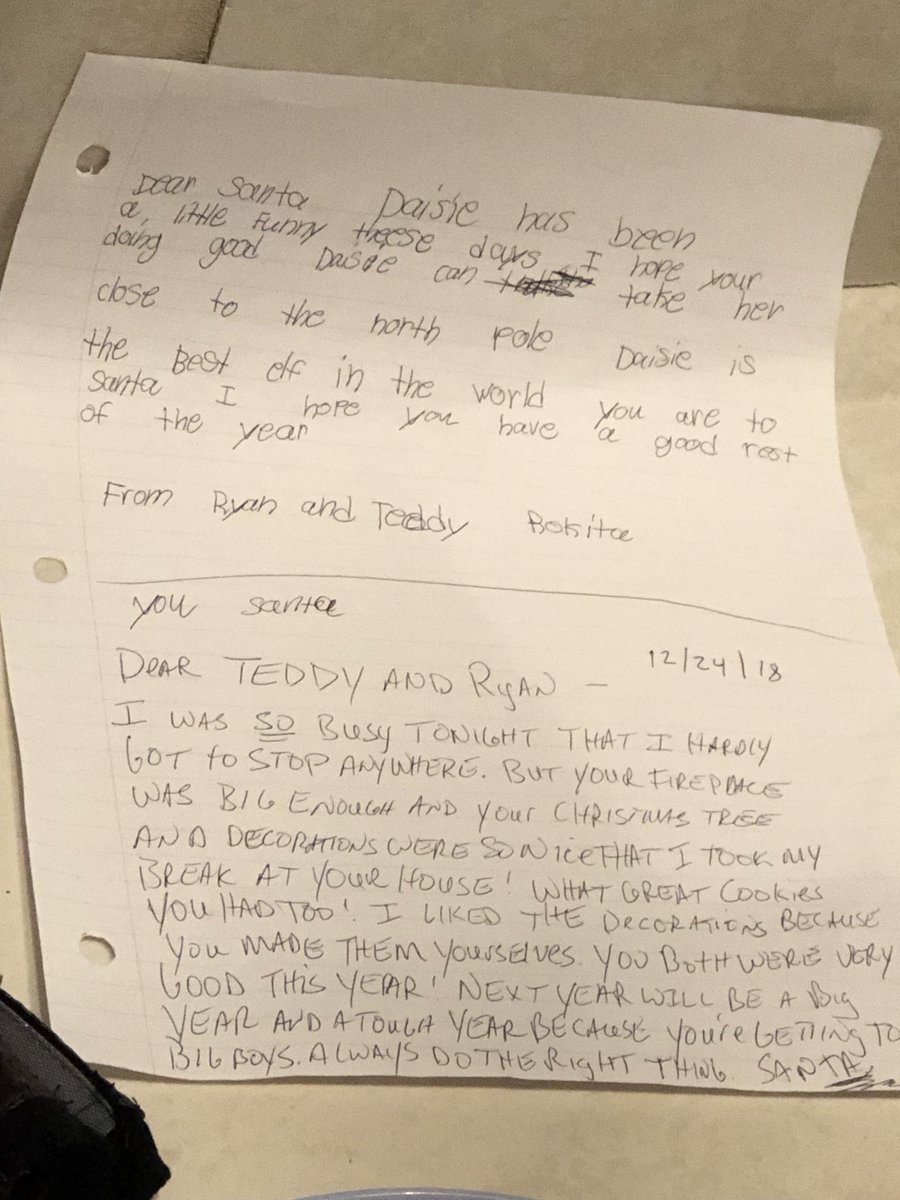 Dear Santa Daisie has been
a little funny theese days I hope your
doing good Daisie can take her
close to the north pole Daisie is
the Best elf in the world you are to
Santa I hope you have a good rest
of the year
From Ryan and Teddy Bokita
you santa
12/24/18
DEAR TEDDY AND RYAN –
I WAS SO BUSY TONIGHT THAT I HARDLY
GOT TO STOP ANYWHERE. BUT YOUR FIREPLACE
WAS BIG ENOUGH AND YOUR CHRISTMAS TREE
AND DECORATIONS WERE SO NICE THAT I TOOK MY
BREAK AT YOUR HOUSE! WHAT GREAT COOKIES
YOU HAD TOO! I LIKED THE DECORATIONS BECAUSE
YOU MADE THEM YOURSELVES. YOU BOTH WERE VERY
GOOD THIS YEAR! NEXT YEAR WILL BE A BIG
YEAR AND A TOUGH YEAR BECAUSE YOU'RE GETTING TO
BIG BOYS. ALWAYS DO THE RIGHT THING. SANTA